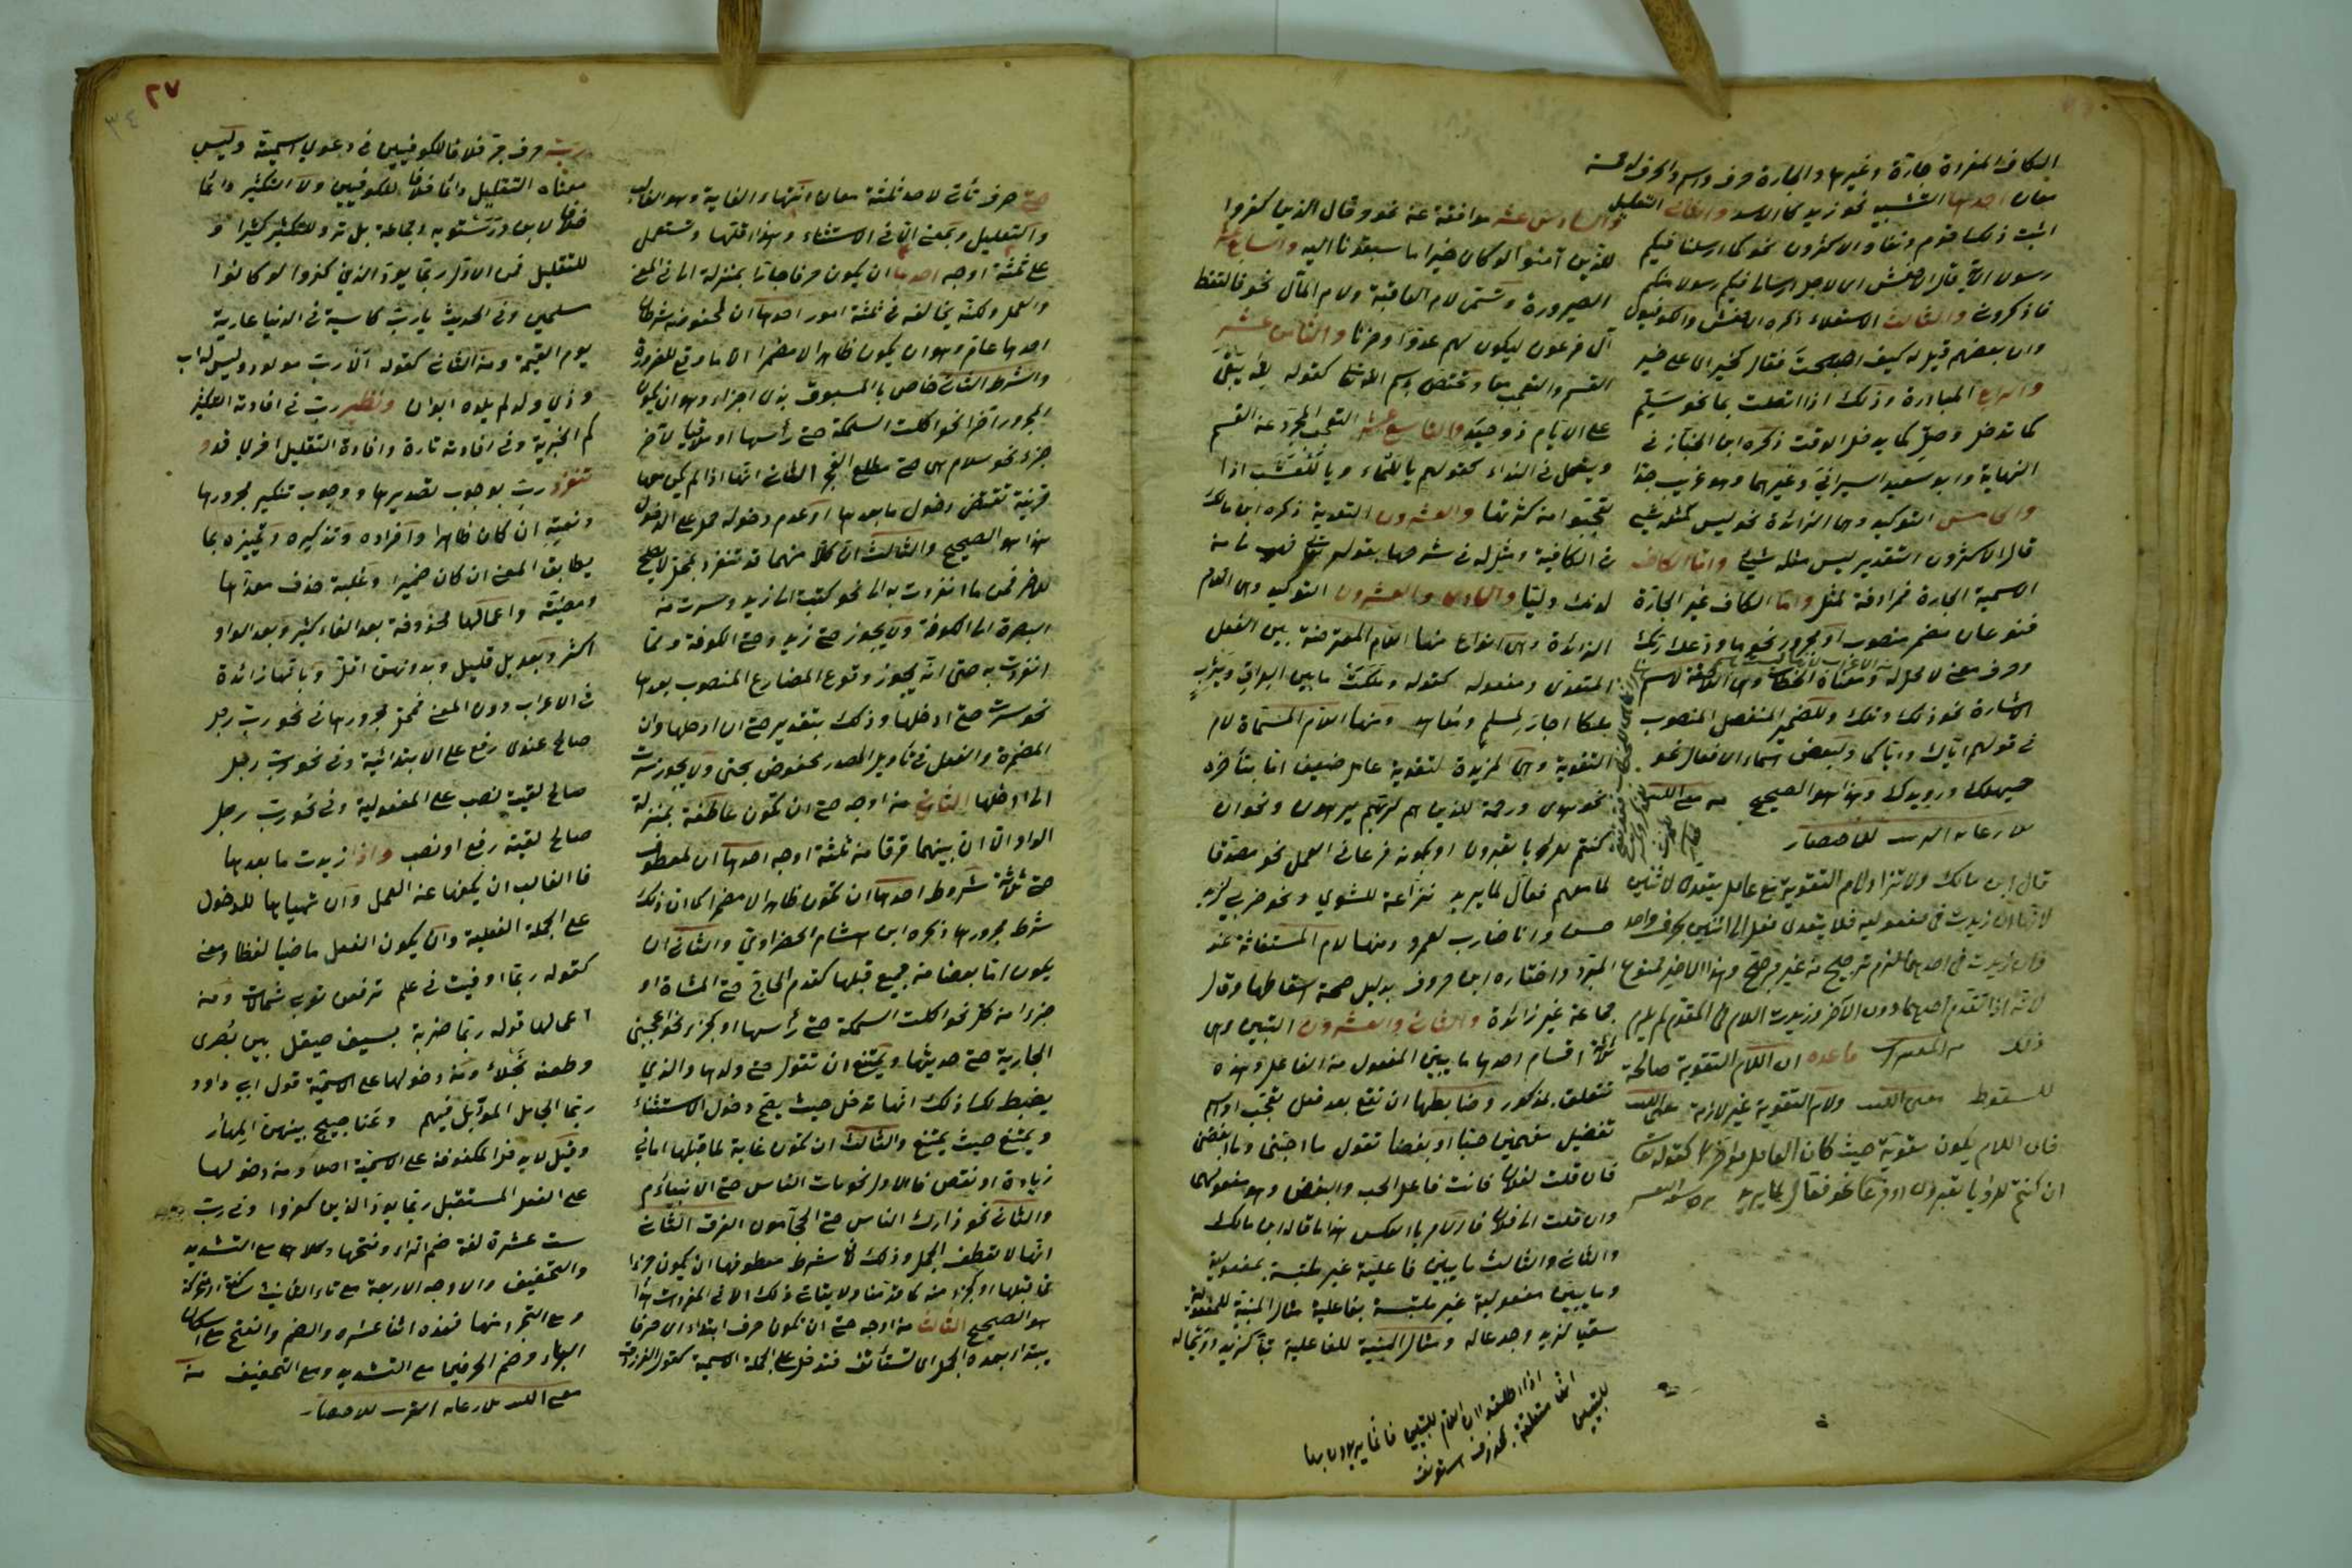 الكاف المفردة جارة وغيرها والجارة حرف واسم والحرف له خمسة
معان احدها التشبيه نحو زيد كالاسد والثاني التعليل
اثبت ذلك قوم ونفاه الاكثرون نحو كما ارسلنا فيكم
رسولا الآية قال الاخفش اي لاجل ارسالي فيكم رسولا منكم
فاذكروني والثالث الاستعلاء ذكره الاخفش والكوفيون
وان بعضهم قيل له كيف اصبحت فقال كخير اي على خير
والرابع المبادرة وذلك اذا اتصلت بما نحو سلم
كما تدخل وصل كما يدخل الوقت ذكره ابن الخباز في
النهاية وابو سعيد السيرافي وغيرهما وهو غريب جدا
والخامس التوكيد وهي الزائدة نحو ليس كمثله شيء
قال الاكثرون التقدير ليس مثله شيء واما الكاف
الاسمية الجارة فمرادفة لمثل واما الكاف غير الجارة
فنوعان مضمر منصوب او مجرور نحو ما ودعك ربك
وحرف معنى لا محل له ومعناه الخطاب وهي اللاحقة لاسم
الاشارة نحو ذلك وتلك وللضمير المنفصل المنصوب
في قولهم اياك واياكما ولبعض اسماء الافعال نحو
حيهلك ورويدك وهذا هو الصحيح من مغني اللبيب
قال ابن مالك ولا تزاد لام التقوية مع عامل يتعدى لاثنين
لانها ان زيدت في مفعوليه فلا يتعدى فعل الى اثنين بحرف واحد
وان زيدت في احدهما لزم ترجيح من غير مرجح وهذا الاخير ممنوع
لانه اذا تقدم احدهما دون الآخر وزيدت اللام في المقدم لم يلزم
ذلك من المغني قاعدة ان اللام التقوية صالحة
للسقوط مغني اللبيب ولام التقوية غير لازمة مغني اللبيب
فان اللام يكون مقوية حيث كان العامل مؤخرا كقوله تعالى
ان كنتم للرؤيا تعبرون او فرعا نحو فعال لما يريد
والسادس عشر موافقة عن نحو وقال الذين كفروا
للذين آمنوا لو كان خيرا ما سبقونا اليه والسابع عشر
الصيرورة وتسمى لام العاقبة ولام المآل نحو فالتقطه
آل فرعون ليكون لهم عدوا وحزنا والثامن عشر
القسم والتعجب معا وتختص باسم الله تعالى كقوله لله يبقى
على الايام ذو حيد والتاسع عشر التعجب المجرد عن القسم
ويستعمل في النداء كقولهم يا للماء ويا للعشب اذا
تعجبوا من كثرتها والعشرون التعدية ذكره ابن مالك
في الكافية ومثل له في شرحها بقوله تعالى فهب لي من
لدنك وليا والحادي والعشرون التوكيد وهي اللام
الزائدة وهي انواع منها اللام المعترضة بين الفعل
المتعدي ومفعوله كقوله وملكت ما بين العراق ويثرب
ملكا اجار لمسلم ومعاهد ومنها اللام المسماة لام
التقوية وهي المزيدة لتقوية عامل ضعيف اما بتأخره
نحو هدى ورحمة للذين هم لربهم يرهبون ونحو ان
كنتم للرؤيا تعبرون او بكونه فرعا في العمل نحو مصدقا
لما معهم فعال لما يريد نزاعة للشوى ونحو ضربي لزيد
حسن وانا ضارب لعمرو ومنها لام المستغاث عند
المبرد واختاره ابن خروف بدليل صحة اسقاطها وقال
جماعة غير زائدة والثاني والعشرون التبيين وهي
ثلاثة اقسام احدها ما يبين المفعول من الفاعل وهذه
تتعلق بمذكور وضابطها ان تقع بعد فعل تعجب او اسم
تفضيل مفهمين حبا او بغضا تقول ما احبني وما ابغضني
فان قلت لفلان فانت فاعل الحب والبغض وهو مفعولهما
وان قلت الى فلان فالامر بالعكس هذا ما قاله ابن مالك
والثاني والثالث ما يبين فاعلية غير ملتبسة بمفعولية
وما يبين مفعولية غير ملتبسة بفاعلية مثال المبينة للمفعولية
سقيا لزيد وجدعا له ومثال المبينة للفاعلية تبا لزيد
حتى حرف تأتي لاحد ثلثة معان انتهاء الغاية وهو الغالب
والتعليل وبمعنى الا في الاستثناء وهذا اقلها وتستعمل
على ثلثة اوجه احدها ان يكون حرفا جارا بمنزلة الى في المعنى
والعمل ولكنه يخالفه في ثلثة امور احدها ان لمخفوضه شرطان
احدهما عام وهو ان يكون ظاهرا لا مضمرا الا ما وقع للضرورة
والشرط الثاني خاص بالمسبوق بذي اجزاء وهو ان يكون
المجرور آخرا نحو اكلت السمكة حتى رأسها او ملاقيا لآخر
جزء نحو سلام هي حتى مطلع الفجر الثاني انها اذا لم يكن معها
قرينة تقتضي دخول ما بعدها او عدم دخوله حمل على الدخول
هذا هو الصحيح والثالث ان كلا منهما قد تنفرد بمحل لا يصلح
للآخر فمن ما انفردت به الى نحو كتبت الى زيد وسرت من
البصرة الى الكوفة ولا يجوز حتى زيد وحتى الكوفة ومما
انفردت به حتى انه يجوز وقوع المضارع المنصوب بعدها
نحو سرت حتى ادخلها وذلك بتقدير حتى ان ادخلها وان
المضمرة والفعل في تأويل المصدر مخفوض بحتى ولا يجوز سرت
الى ادخلها الثاني من اوجه حتى ان تكون عاطفة بمنزلة
الواو الا ان بينهما فرقا من ثلثة اوجه احدها ان لمعطوف
حتى ثلاثة شروط احدها ان تكون ظاهرا لا مضمرا كما ان ذلك
شرط مجرورها ذكره ابن هشام الخضراوي والثاني ان
يكون اما بعضا من جميع قبلها كقدم الحاج حتى المشاة او
جزءا من كل نحو اكلت السمكة حتى رأسها او كجزء نحو اعجبتني
الجارية حتى حديثها ويمتنع ان تقول حتى ولدها والذي
يضبط لك ذلك انها تدخل حيث يصح دخول الاستثناء
ويمتنع حيث يمتنع والثالث ان تكون غاية لما قبلها اما في
زيادة او نقص فالاول نحو مات الناس حتى الانبياء
والثاني نحو زارك الناس حتى الحجامون الفرق الثاني
انها لا تعطف الجمل وذلك لان شرط معطوفها ان يكون جزءا
مما قبلها او كجزء منه كما قدمنا ولا يتأتى ذلك الا في المفردات هذا
هو الصحيح الثالث من اوجه حتى ان تكون حرف ابتداء اي حرفا
يبتدأ بعده الجمل اي تستأنف فتدخل على الجملة الاسمية كقول الفرزدق
رب حرف جر خلافا للكوفيين في دعوى اسمية وليس
معناه التقليل دائما خلافا للكوفيين ولا التكثير دائما
خلافا لابن درستويه وجماعة بل ترد للتكثير كثيرا و
للتقليل فمن الاول ربما يود الذين كفروا لو كانوا
مسلمين وفي الحديث يا رب كاسية في الدنيا عارية
يوم القيمة ومن الثاني كقوله الا رب مولود وليس له اب
وذي ولد لم يلده ابوان ونظير رب في افادة التكثير
كم الخبرية وفي افادته تارة وافادة التقليل اخرى قد و
تنفرد رب بوجوب تصديرها ووجوب تنكير مجرورها
ونعته ان كان ظاهرا وافراده وتذكيره وتمييزه بما
يطابق المعنى ان كان ضميرا وغلبة حذف معداها
ومضيه واعمالها محذوفة بعد الفاء كثير وبعد الواو
اكثر وبعد بل قليل وبدونهن اقل وبانها زائدة
في الاعراب دون المعنى فمحل مجرورها في نحو رب رجل
صالح عندي رفع على الابتدائية وفي نحو رب رجل
صالح لقيت نصب على المفعولية وفي نحو رب رجل
صالح لقيته رفع او نصب واذا زيدت ما بعدها
فالغالب ان يكفها عن العمل وان تهيئها للدخول
على الجملة الفعلية وان يكون الفعل ماضيا لفظا ومعنى
كقوله ربما اوفيت في علم ترفعن ثوبي شمالات ومن
اعمالها قوله ربما ضربة بسيف صيقل بين بصرى
وطعنة نجلاء ومن دخولها على الاسمية قول ابي داود
ربما الجامل المؤبل فيهم وعناجيج بينهن المهار
وقيل لا يدخل المكفوفة على الاسمية اصلا ومن دخولها
على الفعل المستقبل ربما يود الذين كفروا وفي رب
ست عشرة لغة ضم الراء وفتحها وكلاهما مع التشديد
والتخفيف والاوجه الاربعة مع تاء التأنيث ساكنة او محركة
ومع التجرد منها فهذه اثنا عشره والضم والفتح مع اسكان
الباء وضم الحرفين مع التشديد ومع التخفيف من
مغني اللبيب
٢٧
٣٤